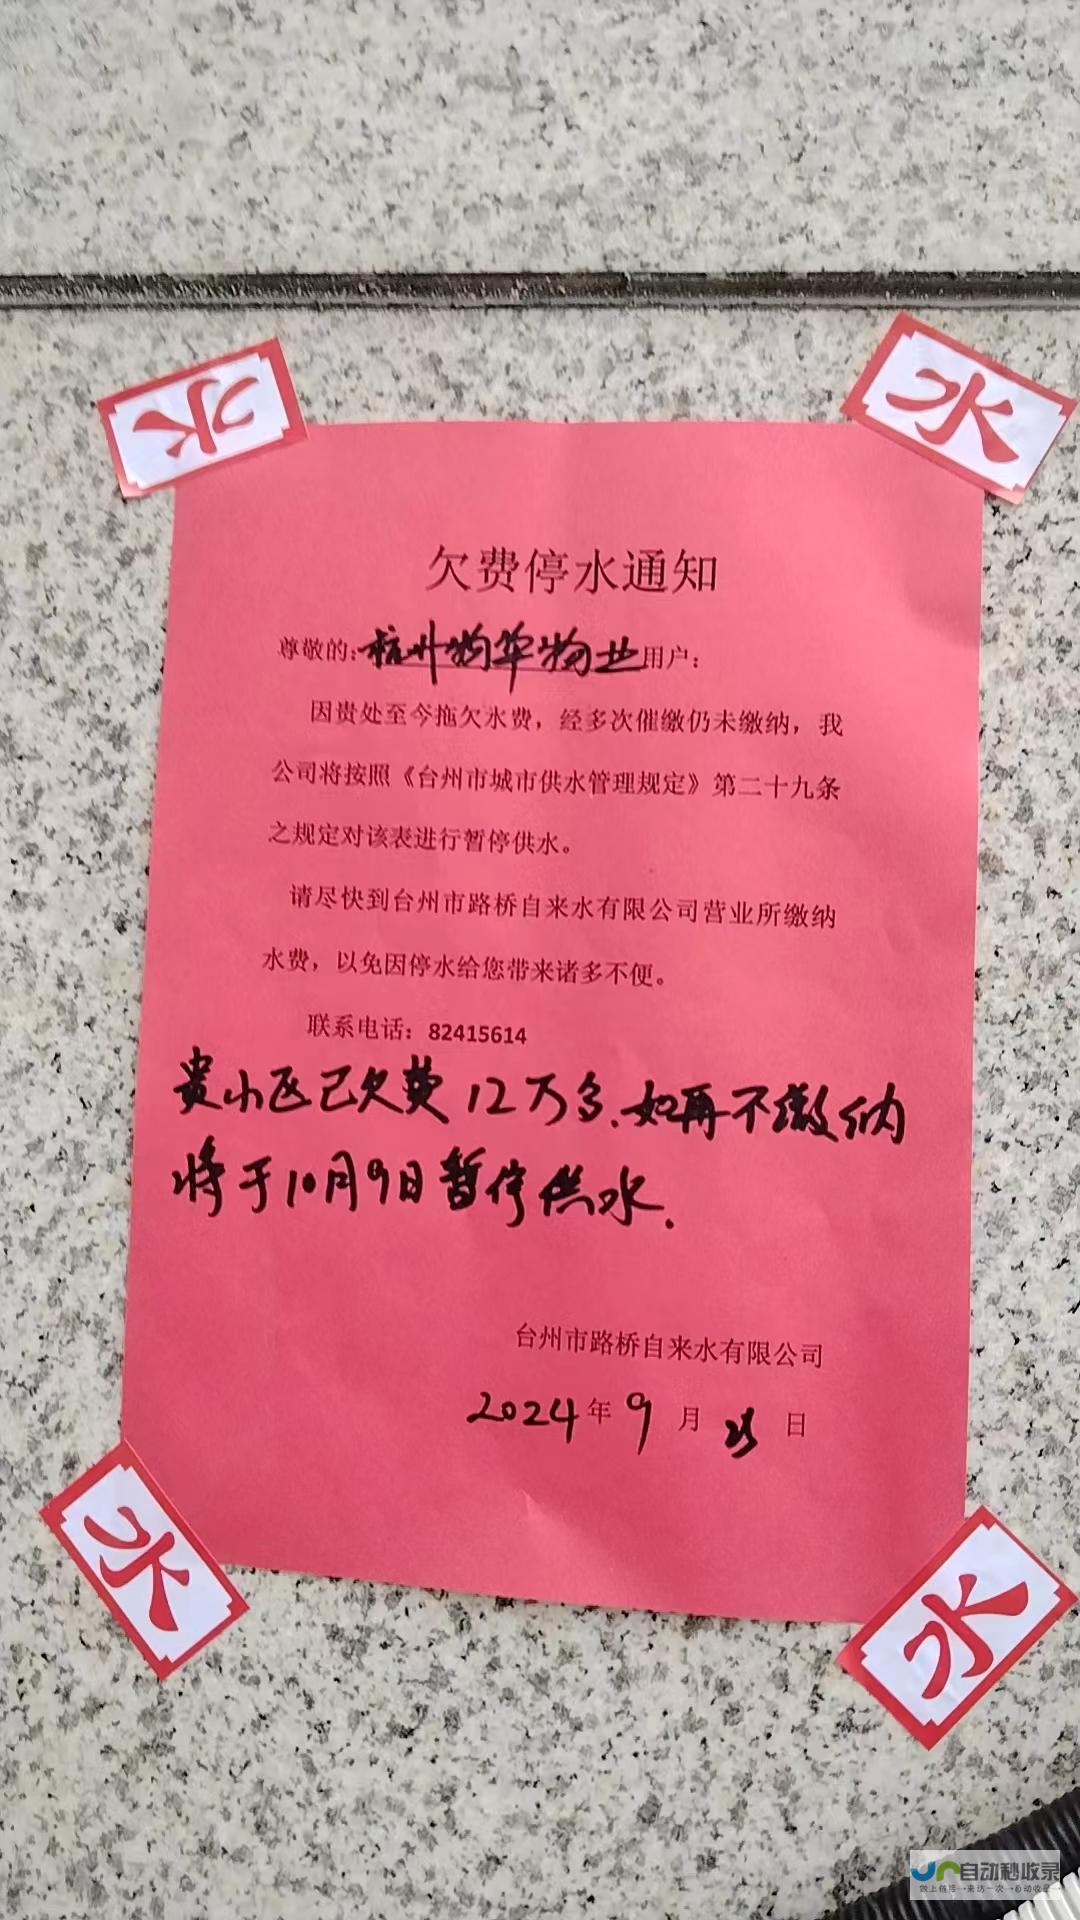 水
水
欠费停水通知
尊敬的:杭州物华物业用户:
因贵处至今拖欠水费，经多次催缴仍未缴纳，我
公司将按照《台州市城市供水管理规定》第二十九条
之规定对该表进行暂停供水。
请尽快到台州市路桥自来水有限公司营业所缴纳
水费，以免因停水给您带来诸多不便。
联系电话：82415614
贵小区已欠费12万多.如再不缴纳
将于10月9日暂停供水.
台州市路桥自来水有限公司
2024年9月25日
水
水
自动秒收录
做上链接→来访一次→自动收录